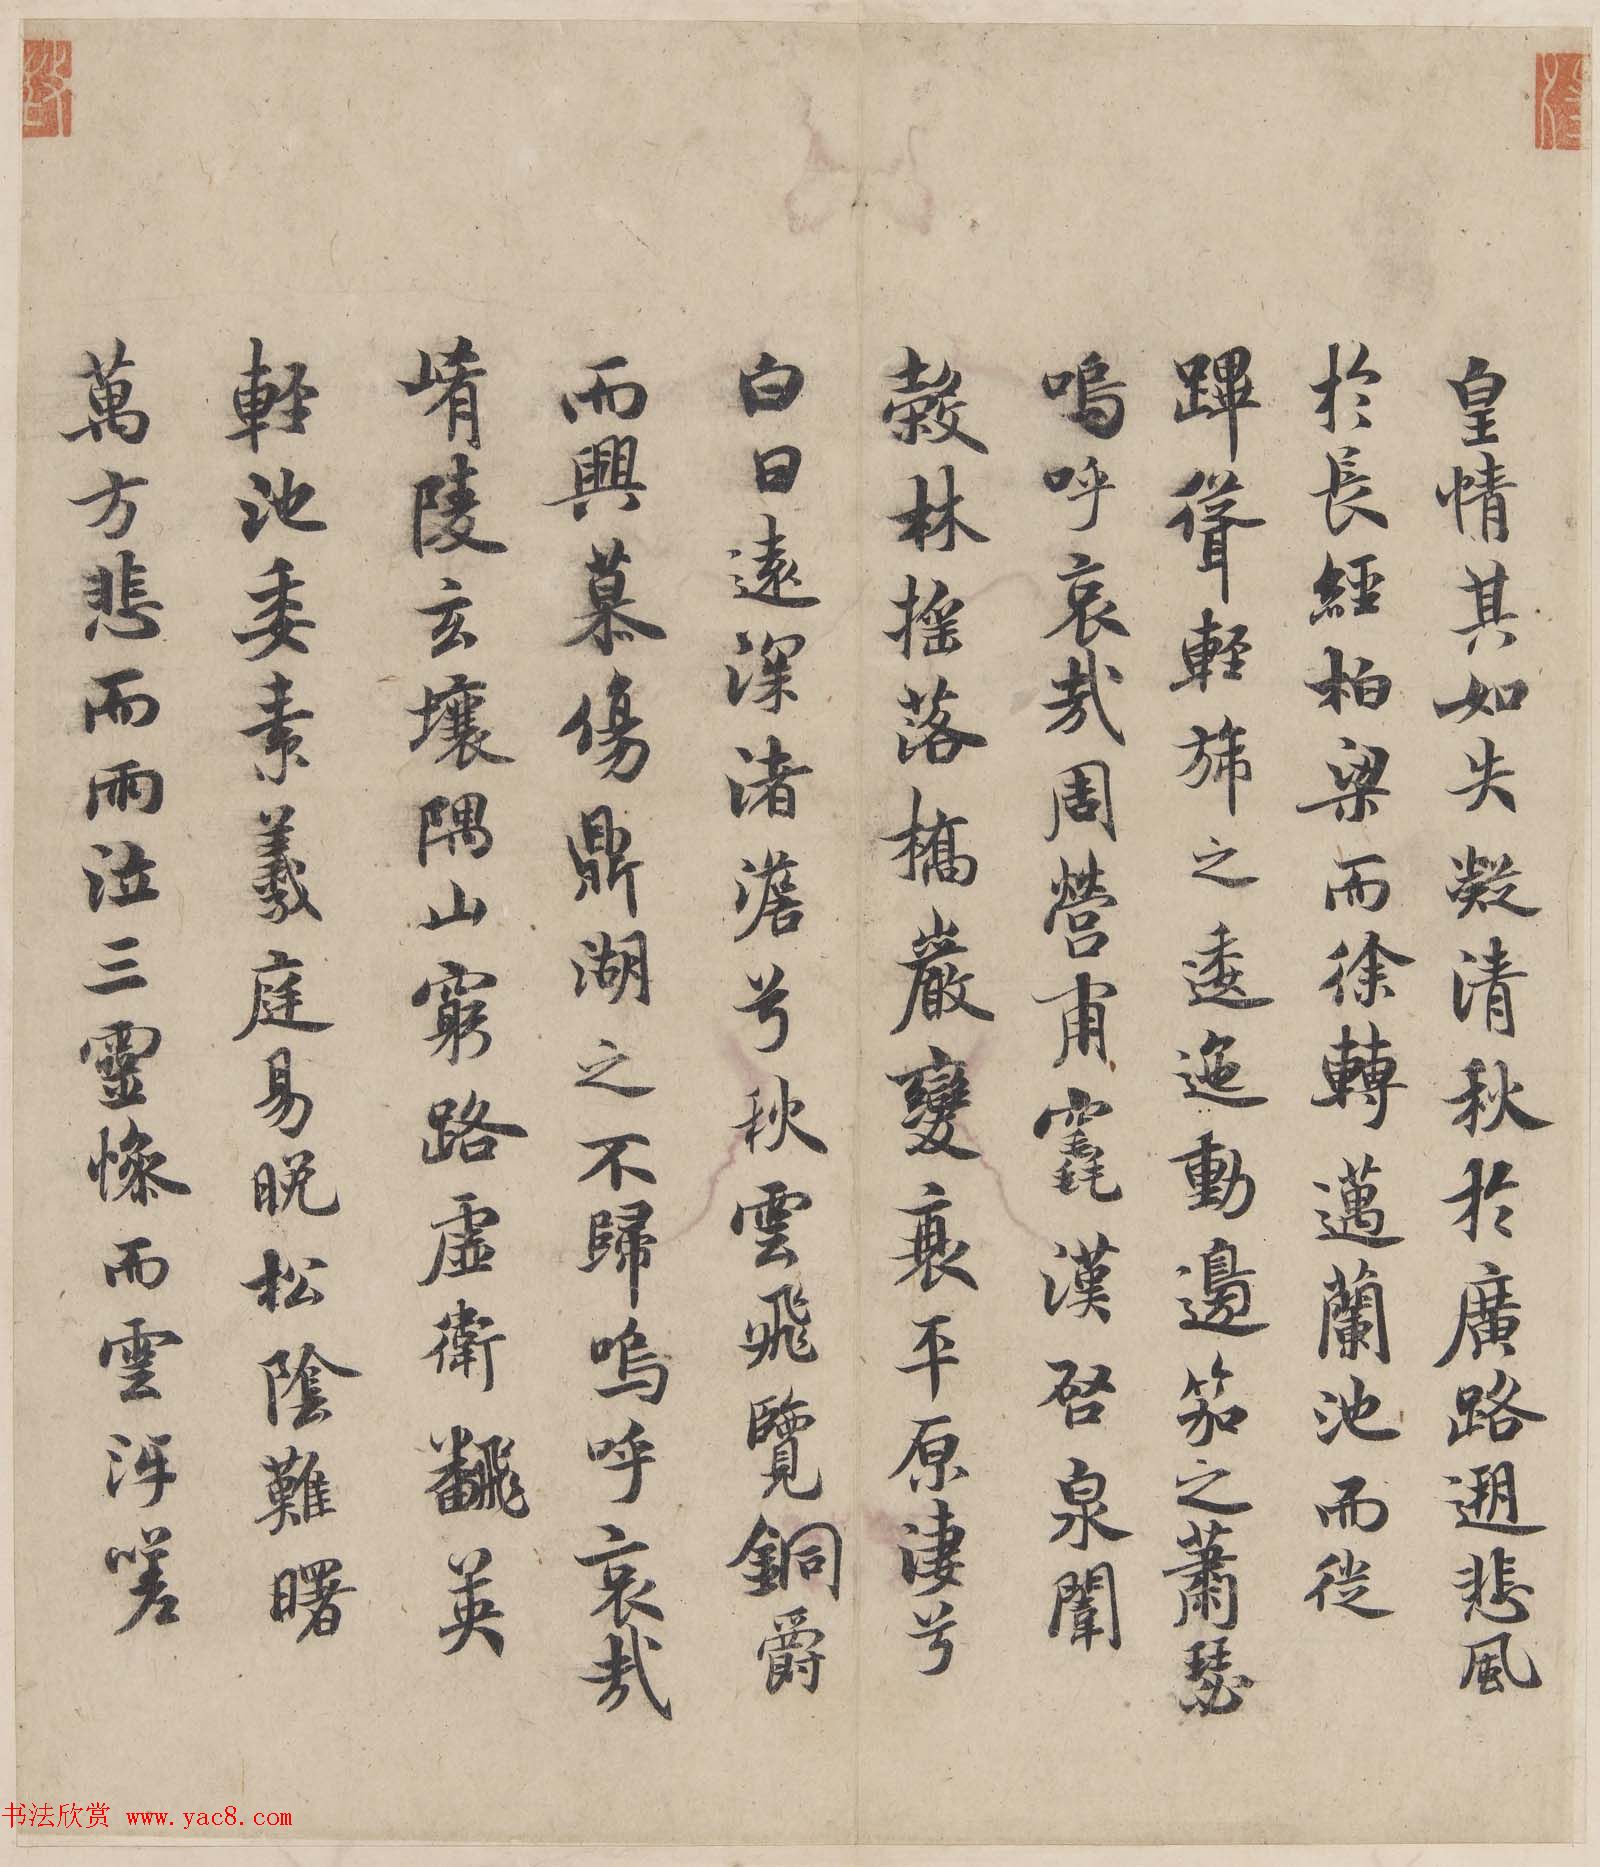 皇情其如失凝清秋於廣路遡悲風
於長經柏梁而徐轉邁蘭池而徙
蹕聳輕旆之逶迤動邊笳之蕭瑟
嗚呼哀哉周營甫竁漢啓泉闈
穀林搖落橋巖變衰平原淒兮
白日遠深渚澹兮秋雲飛覽銅爵
而興慕傷鼎湖之不歸嗚呼哀哉
崤陵玄壤隅山窮路虛衛飜英
輕池委素羲庭易晚松陰難曙
萬方悲而雨泣三靈慘而雲冱嗟
书法欣赏 www.yac8.com